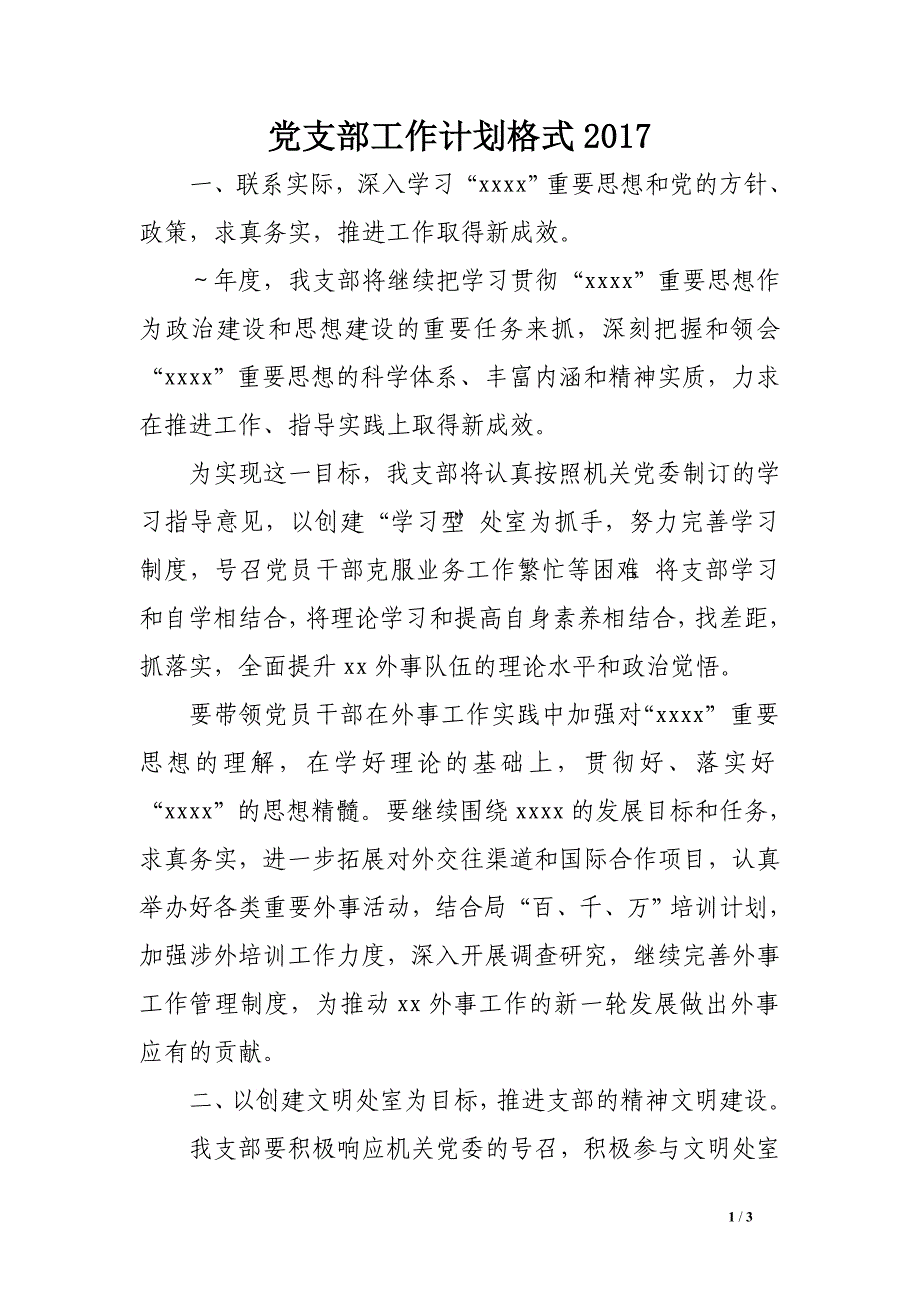 党支部工作计划格式2017
一、联系实际，深入学习“xxxx”重要思想和党的方针、
政策，求真务实，推进工作取得新成效。
～年度，我支部将继续把学习贯彻“xxxx”重要思想作
为政治建设和思想建设的重要任务来抓，深刻把握和领会
“xxxx”重要思想的科学体系、丰富内涵和精神实质，力求
在推进工作、指导实践上取得新成效。
为实现这一目标，我支部将认真按照机关党委制订的学
习指导意见，以创建“学习型”处室为抓手，努力完善学习
制度，号召党员干部克服业务工作繁忙等困难，将支部学习
和自学相结合，将理论学习和提高自身素养相结合，找差距，
抓落实，全面提升xx外事队伍的理论水平和政治觉悟。
要带领党员干部在外事工作实践中加强对“xxxx”重要
思想的理解，在学好理论的基础上，贯彻好、落实好
“xxxx”的思想精髓。要继续围绕xxxx的发展目标和任务，
求真务实，进一步拓展对外交往渠道和国际合作项目，认真
举办好各类重要外事活动，结合局“百、千、万”培训计划，
加强涉外培训工作力度，深入开展调查研究，继续完善外事
工作管理制度，为推动xx外事工作的新一轮发展做出外事
应有的贡献。
二、以创建文明处室为目标，推进支部的精神文明建设。
我支部要积极响应机关党委的号召，积极参与文明处室
1 / 3